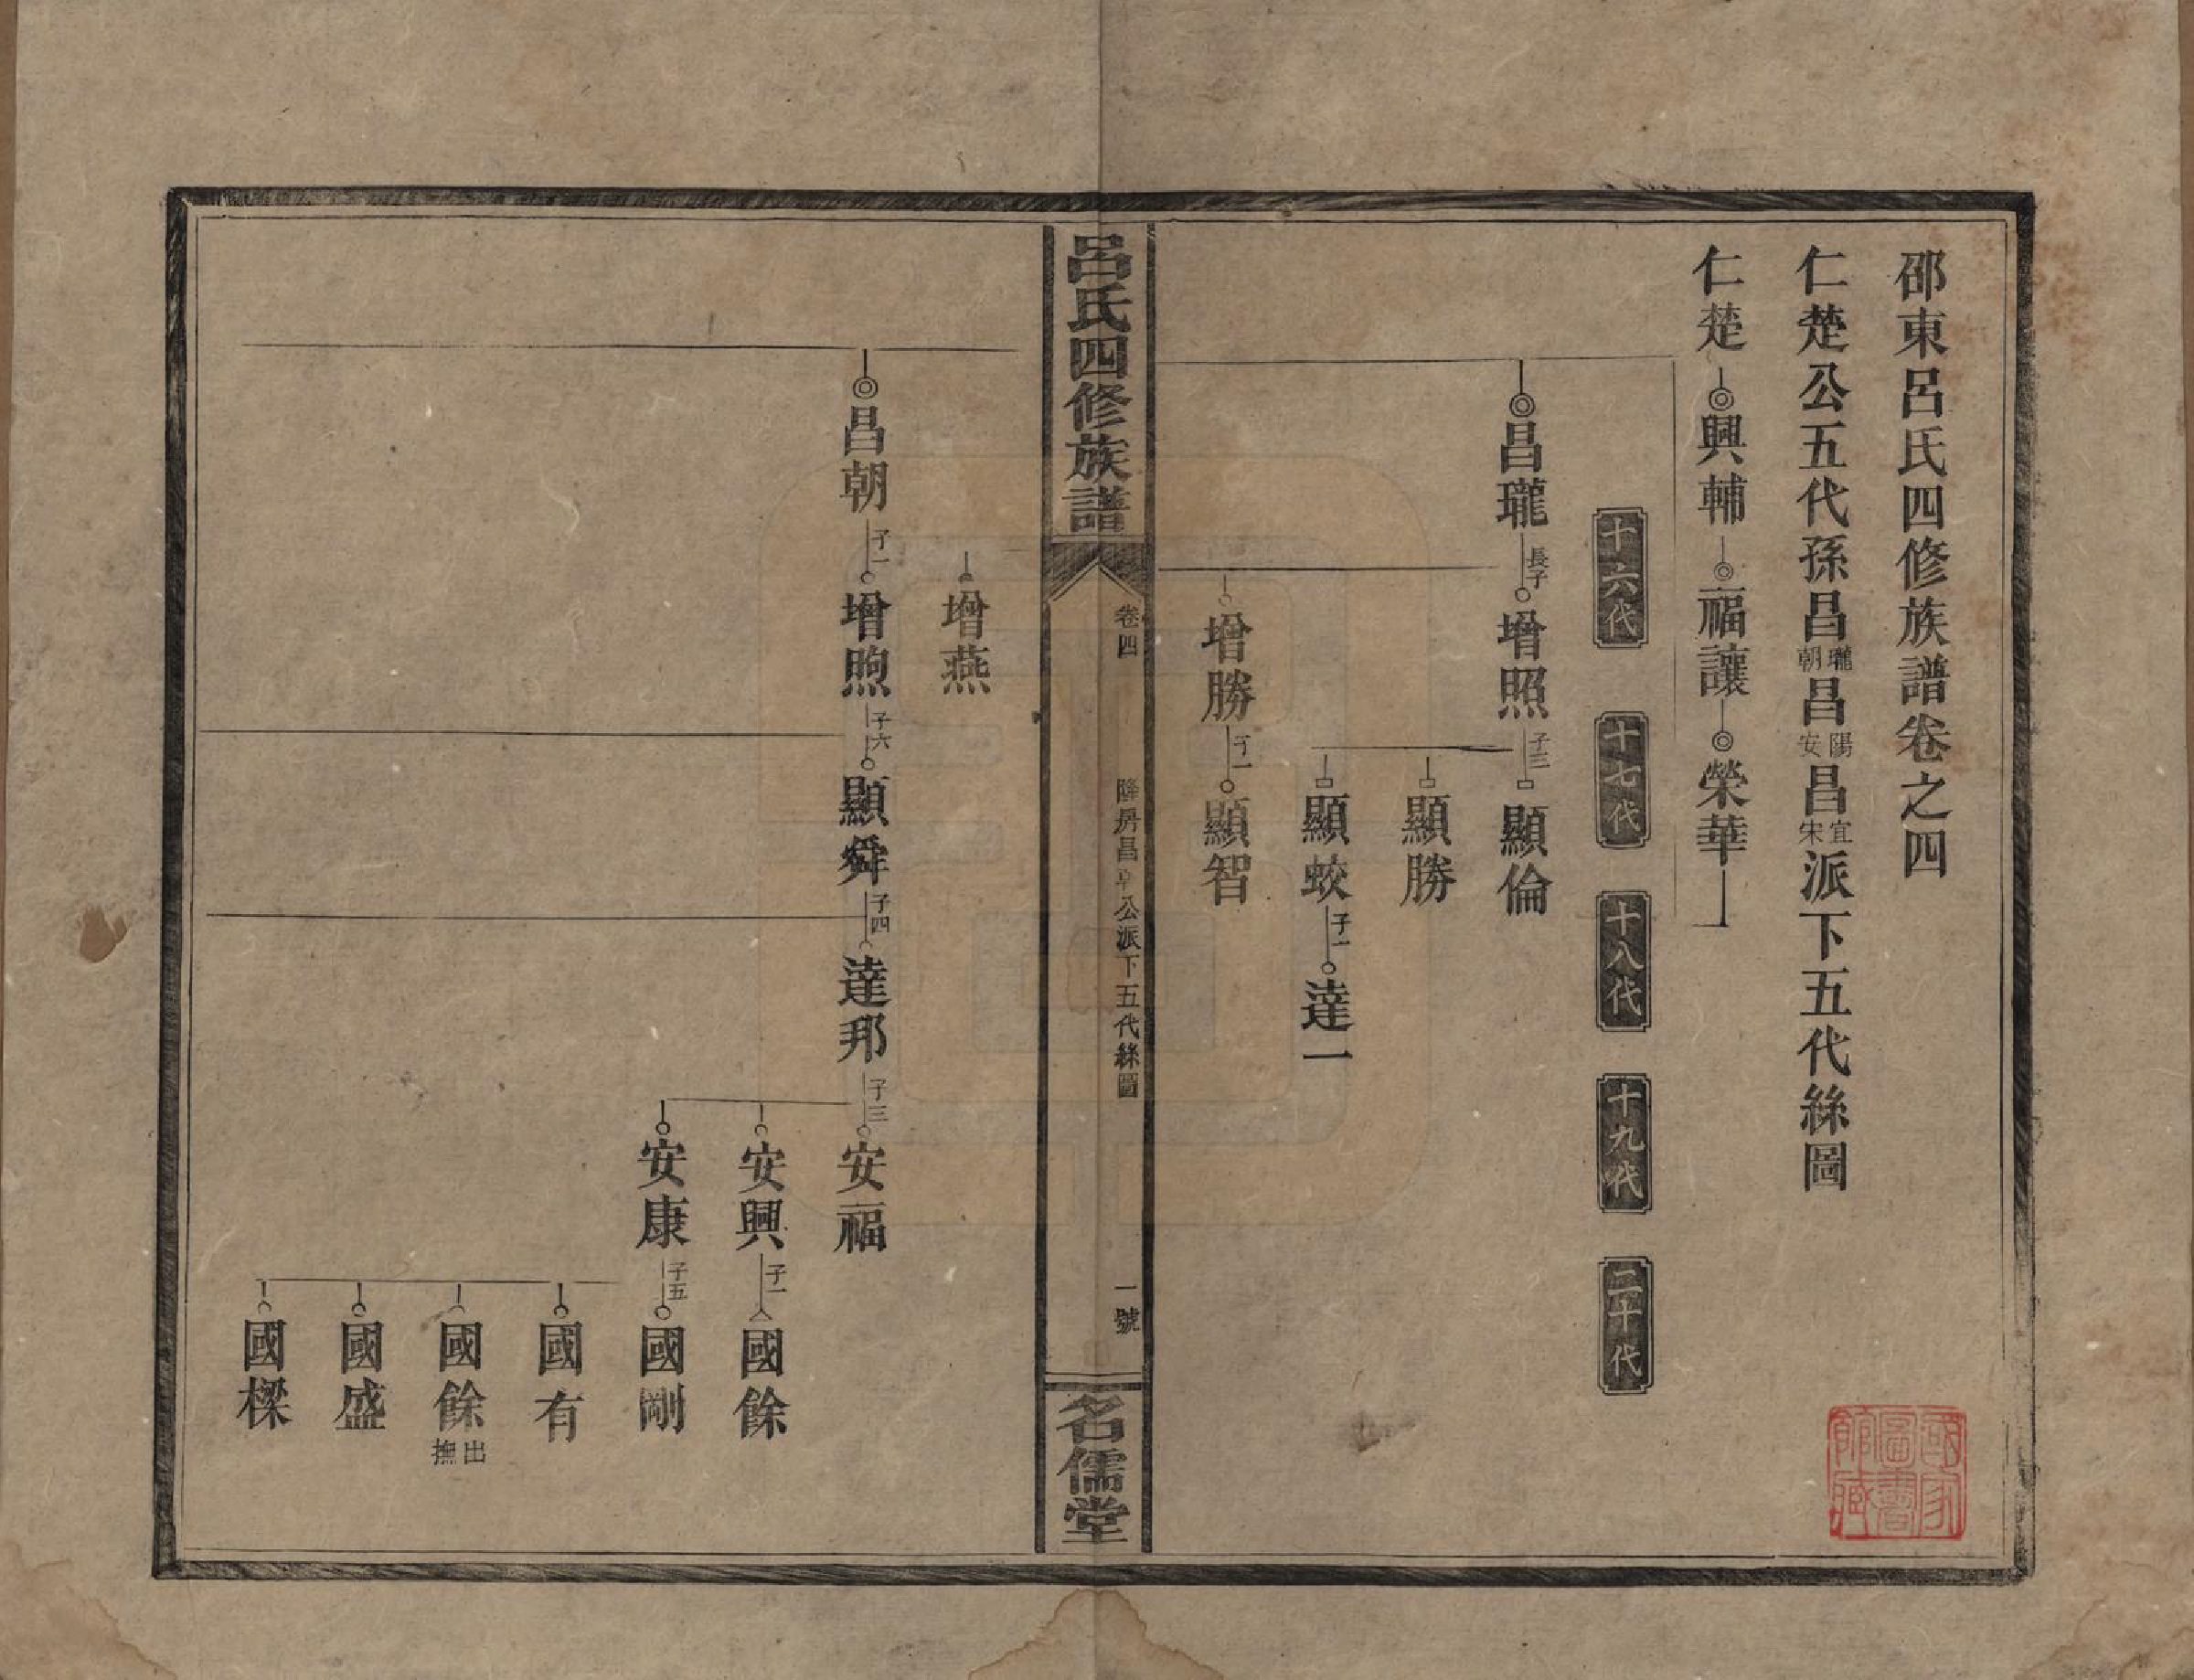 邵東呂氏四修族譜卷之四
仁楚公五代孫昌瓏朝昌陽安昌宜宋派下五代絲圖
仁楚 興輔 福讓 榮華
十六代 十七代 十八代 十九代 二十代
昌瓏 長子 增照 子三 顯倫
顯勝
顯蛟 子一 達一
增勝 子一 顯智
呂氏四修族譜 卷四 隆房昌朝公派下五代絲圖 一號 名儒堂
增燕
昌朝 子一 增煦 子六 顯舜 子四 達邦 子三 安福
安興 子一 國餘
安康 子五 國剛
國有
國餘 出撫
國盛
國樑
國家圖書館藏